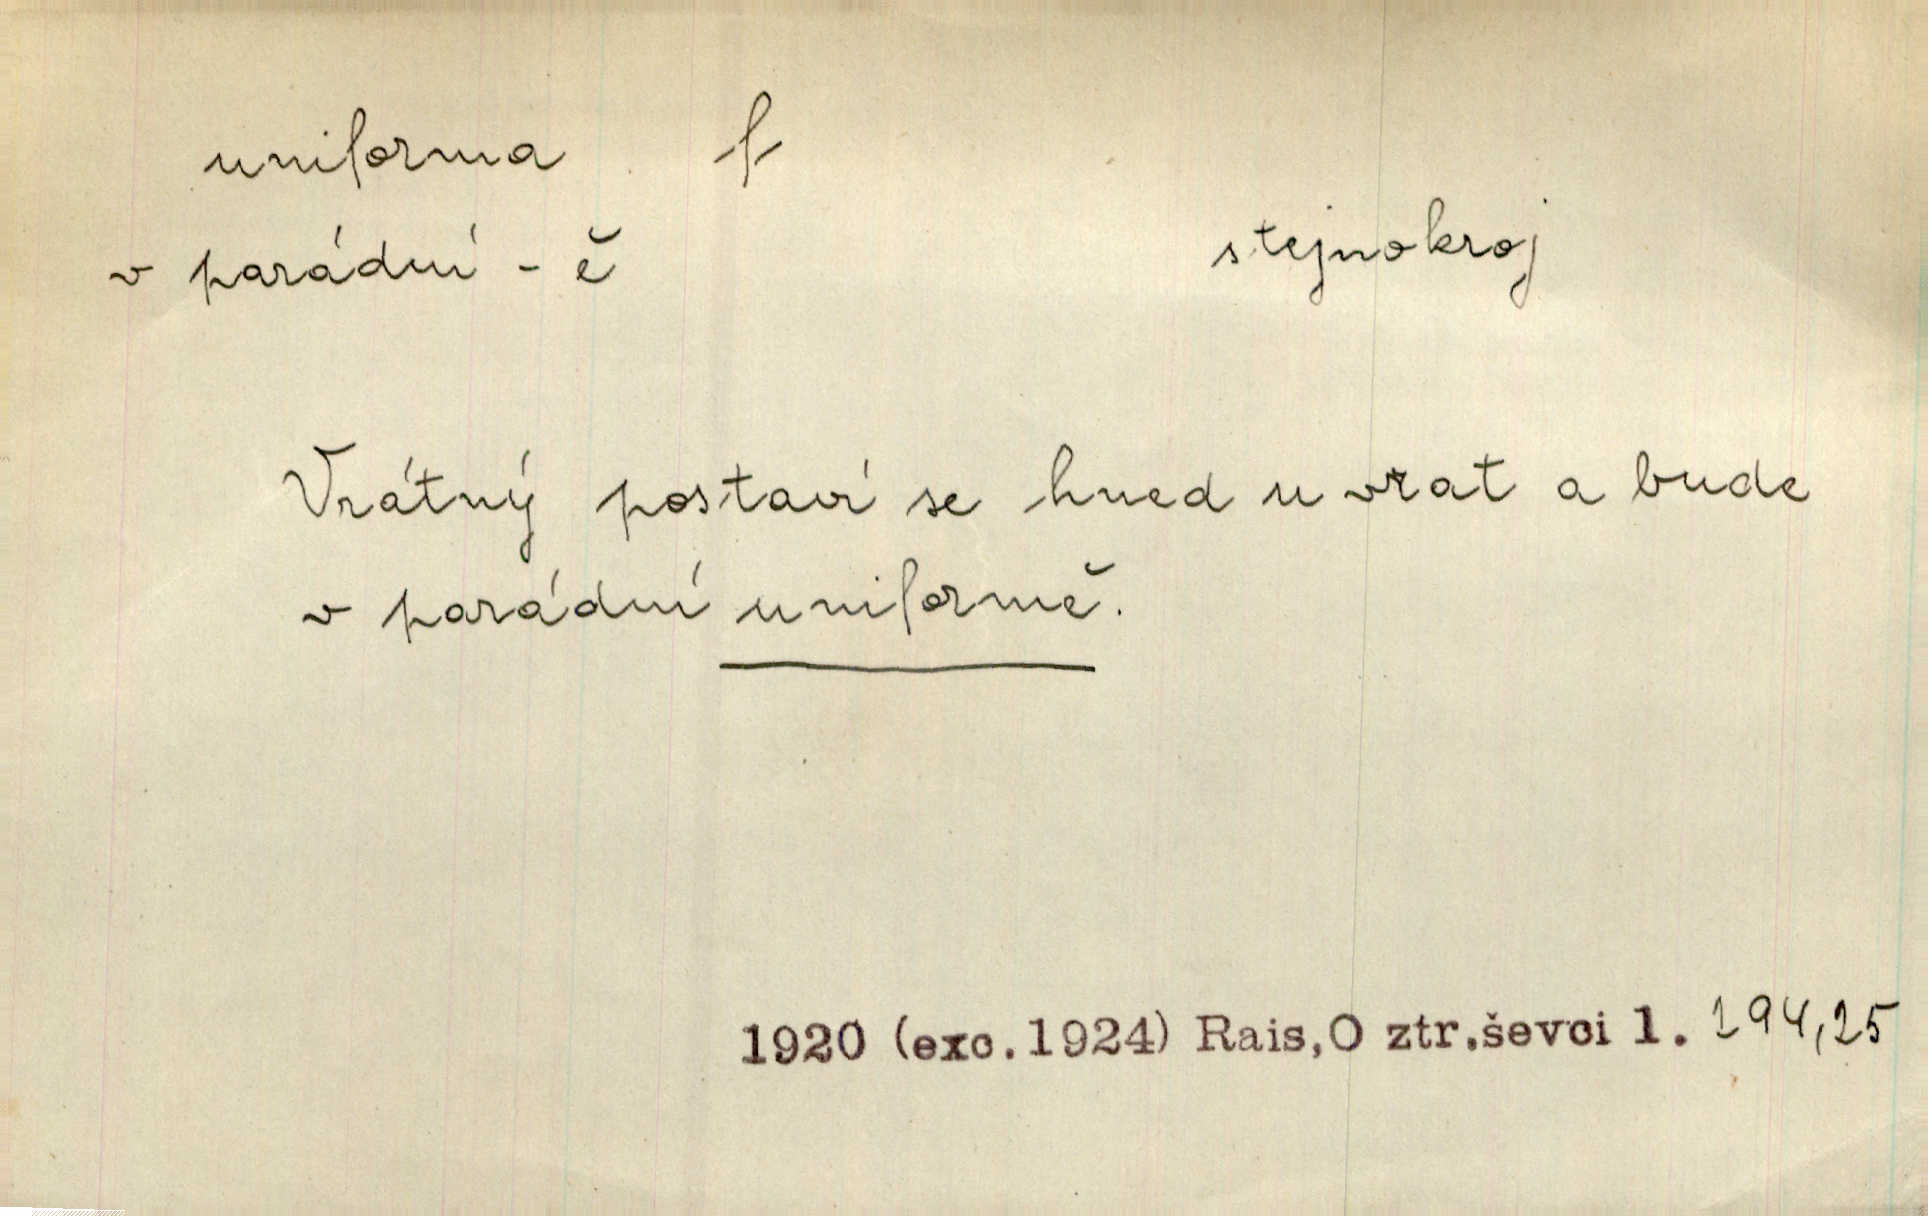 uniforma f
v parádní - ě
stejnokroj
Vrátný postaví se hned u vrat a bude
v parádní uniformě.
1920 (exc.1924) Rais,O ztr.ševci 1. 194,25